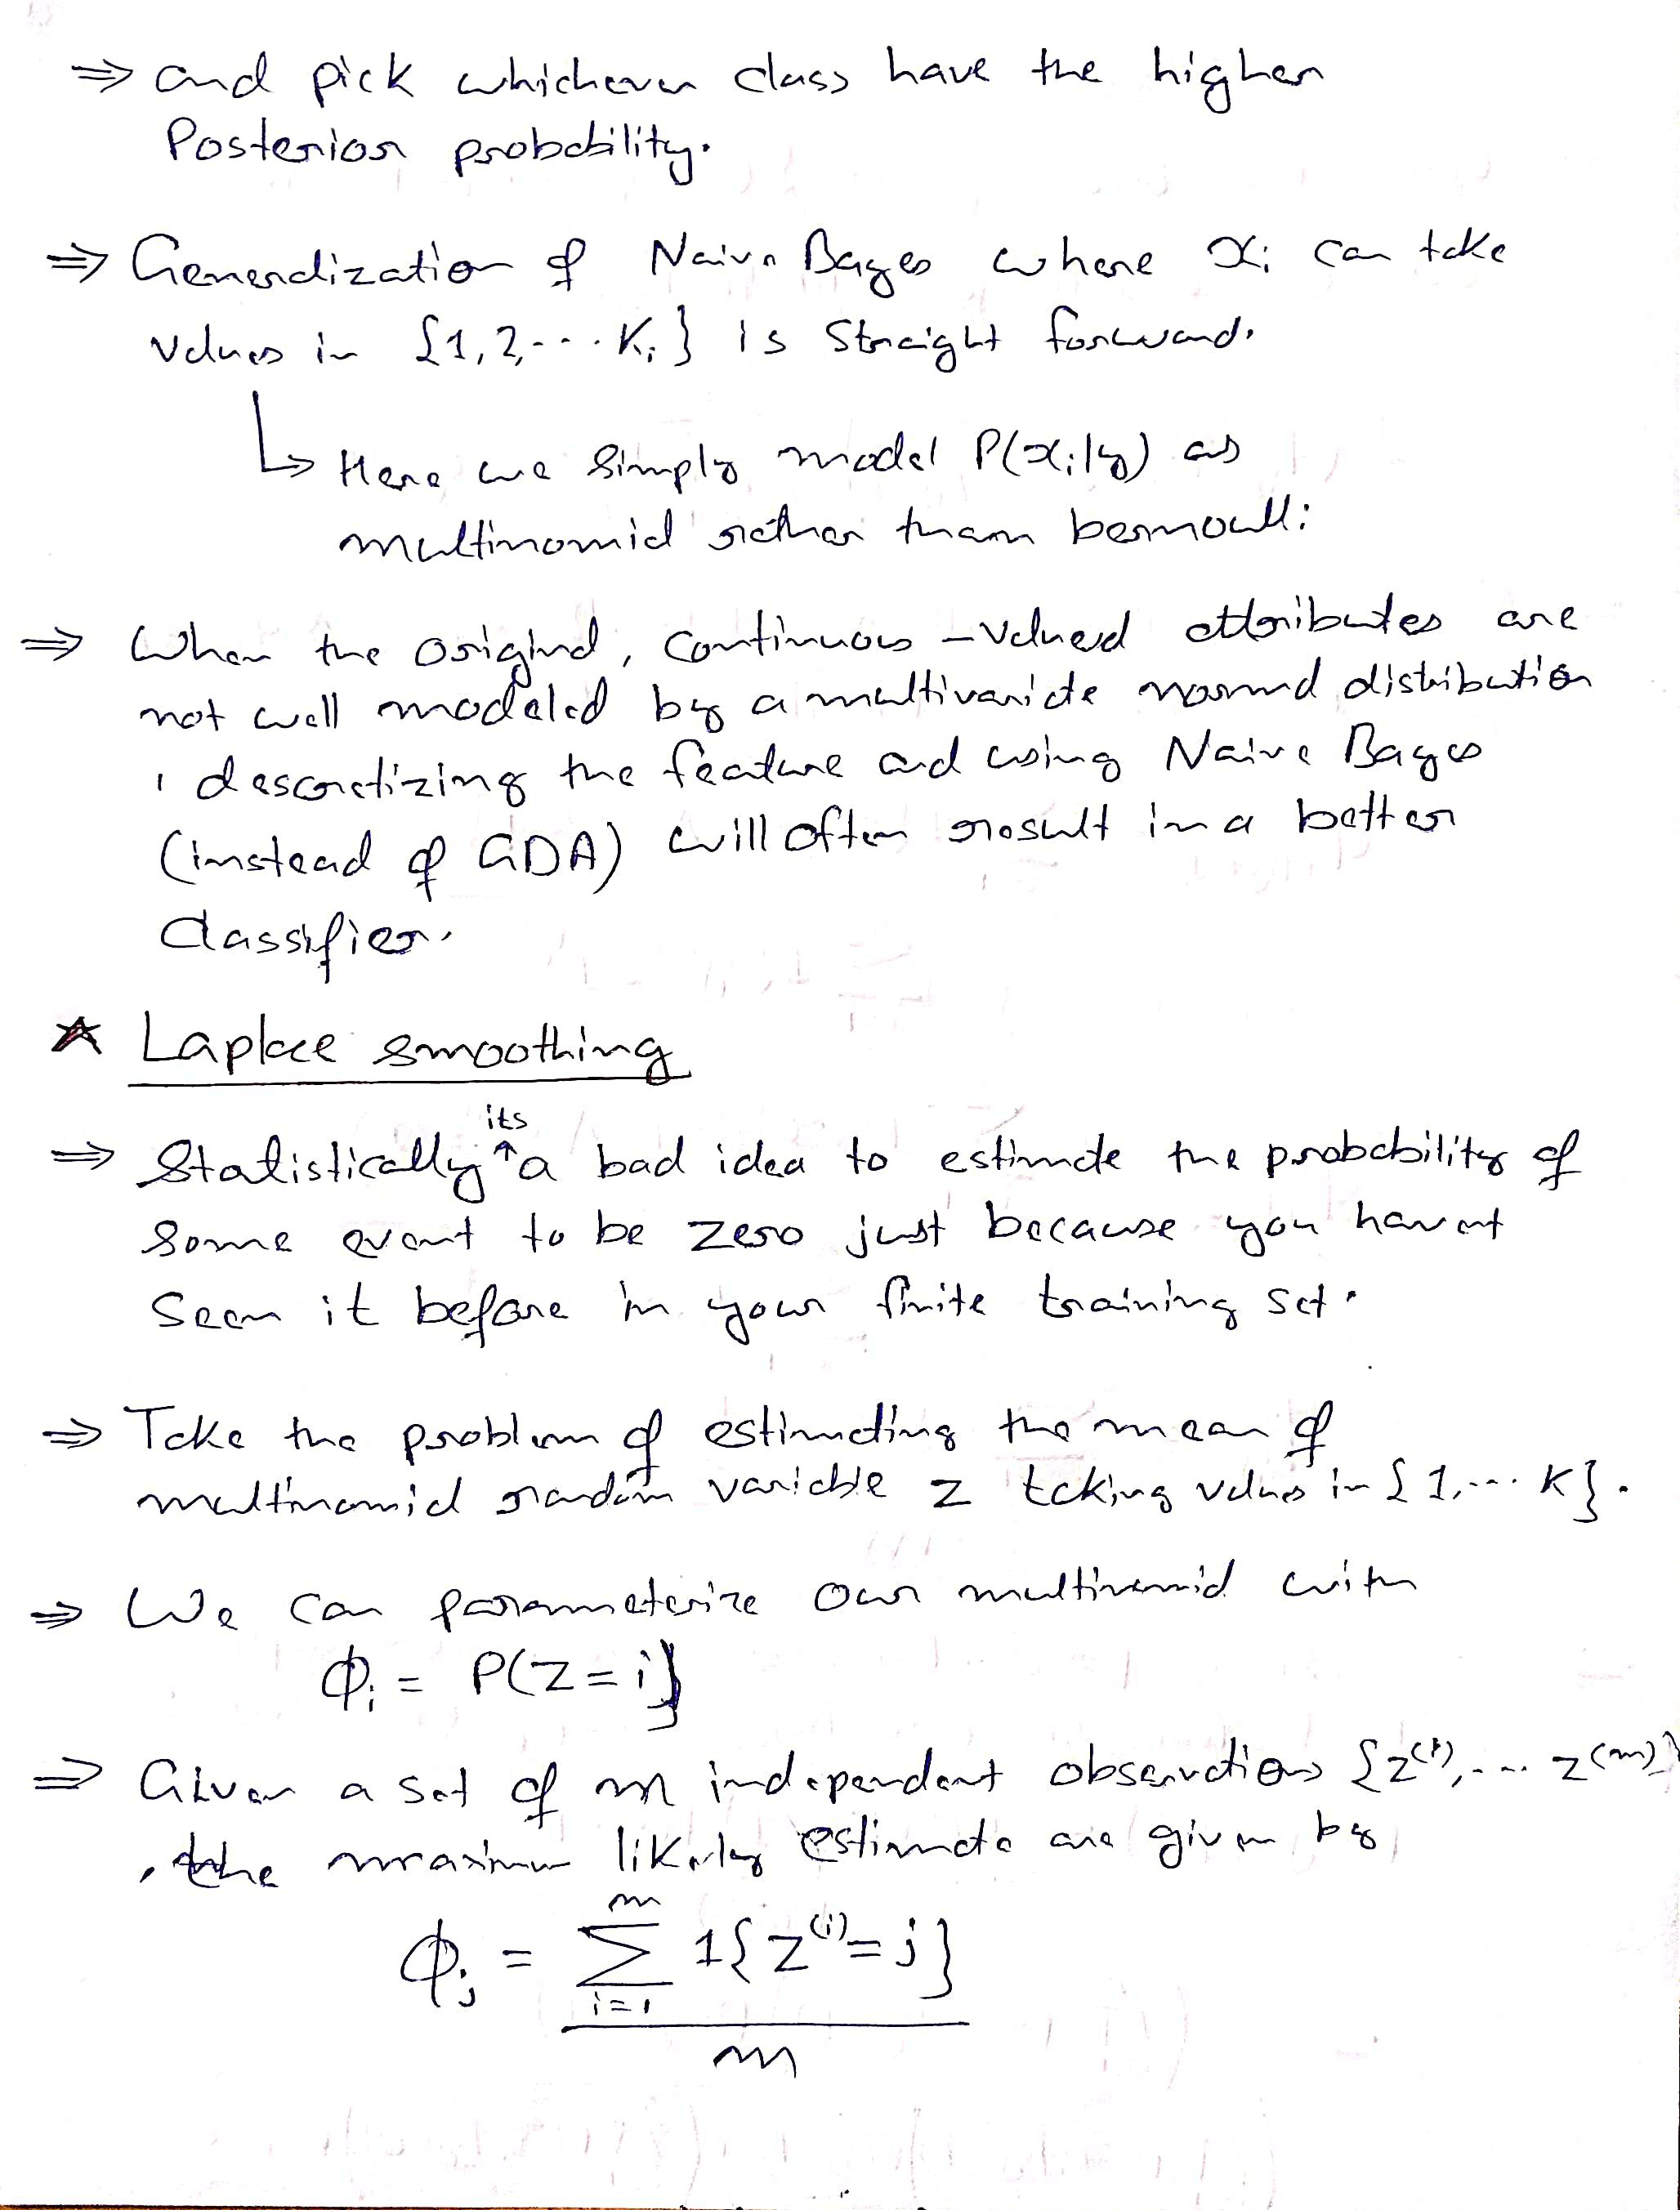 ⇒ and pick whichever class have the higher
Posterior probability.
⇒ Generalization of Naive Bayes where xᵢ can take
values in {1, 2, ... Kᵢ} is Straight forward.
↳ Here we simply model P(xᵢ|y) as
multinomial rather than bernoulli
⇒ When the original, continuous - valued attributes are
not well modeled by a multivariate normal distribution
, descretizing the feature and using Naive Bayes
(instead of GDA) will often result in a better
classifier.
★ Laplace smoothing
its
⇒ Statistically ↑ a bad idea to estimate the probability of
some event to be zero just because you havent
seen it before in your finite training set.
⇒ Take the problem of estimating the mean of
multinomial random variable z taking values in {1, ... K}.
⇒ We can parameterize our multinomial with
ϕᵢ = P(Z = i)
⇒ Given a set of m independent observations {z⁽¹⁾, ... z⁽ᵐ⁾}
, the maximum likely estimate are given by
m
ϕⱼ = Σ 1{z⁽ⁱ⁾ = j}
i=1
m